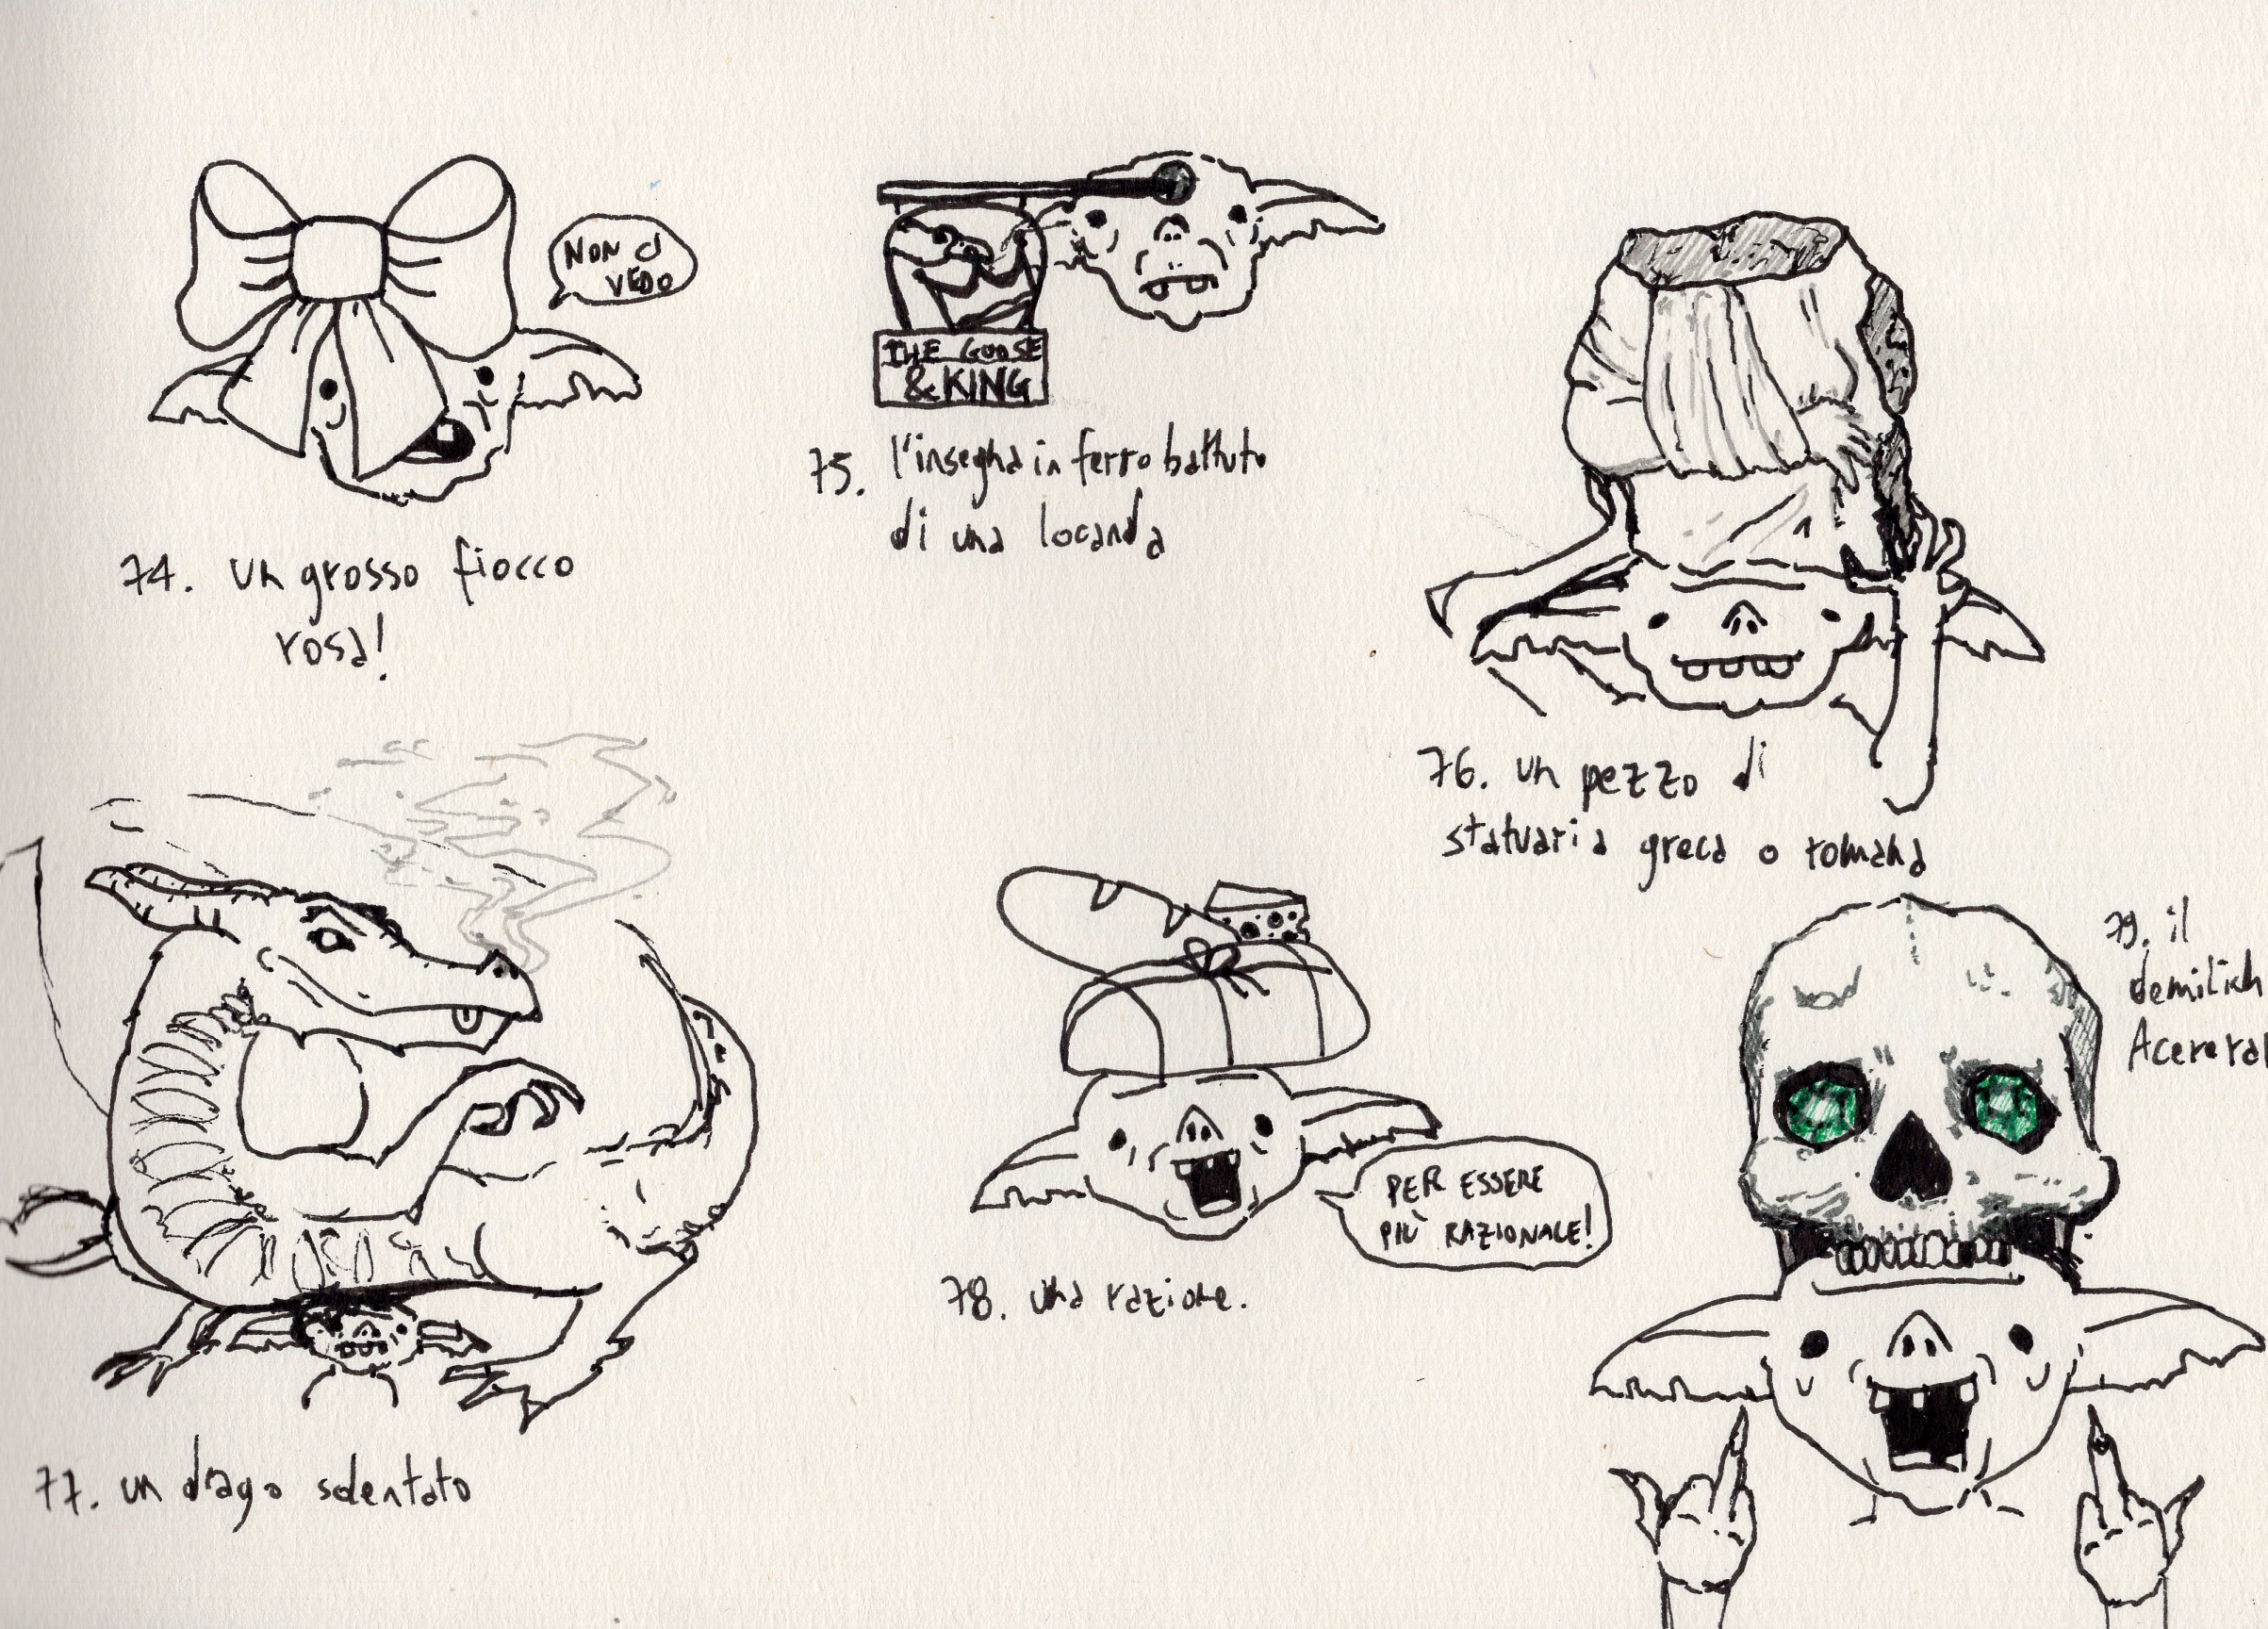 NON CI
VEDO
74. un grosso fiocco
rosa!
THE GOOSE
& KING
75. l'insegna in ferro battuto
di una locanda
76. un pezzo di
statuaria greca o romana
77. un drago sdentato
PER ESSERE
PIÙ RAZIONALE!
78. una razione.
79. il
demilich
Acererak